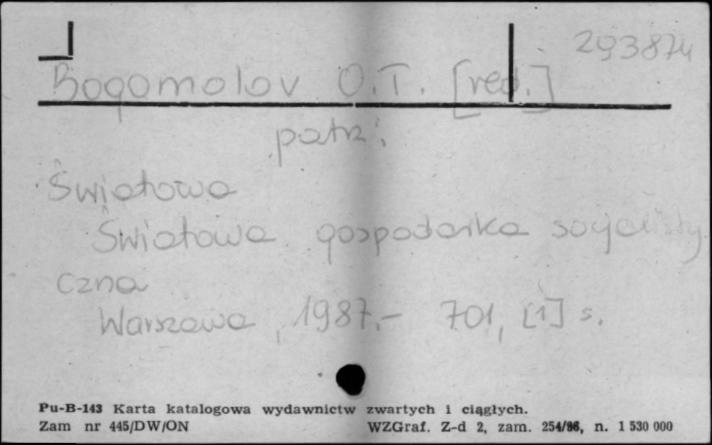 293874
Bogomolov O.T. [red.]
patrz:
Światowa
Światowa gospodarka socjalisty
czna
Warszawa, 1987.- 701, [1] s.
Pu-B-143 Karta katalogowa wydawnictw zwartych i ciągłych.
Zam nr 445/DW/ON WZGraf. Z-d 2, zam. 254/86, n. 1 530 000